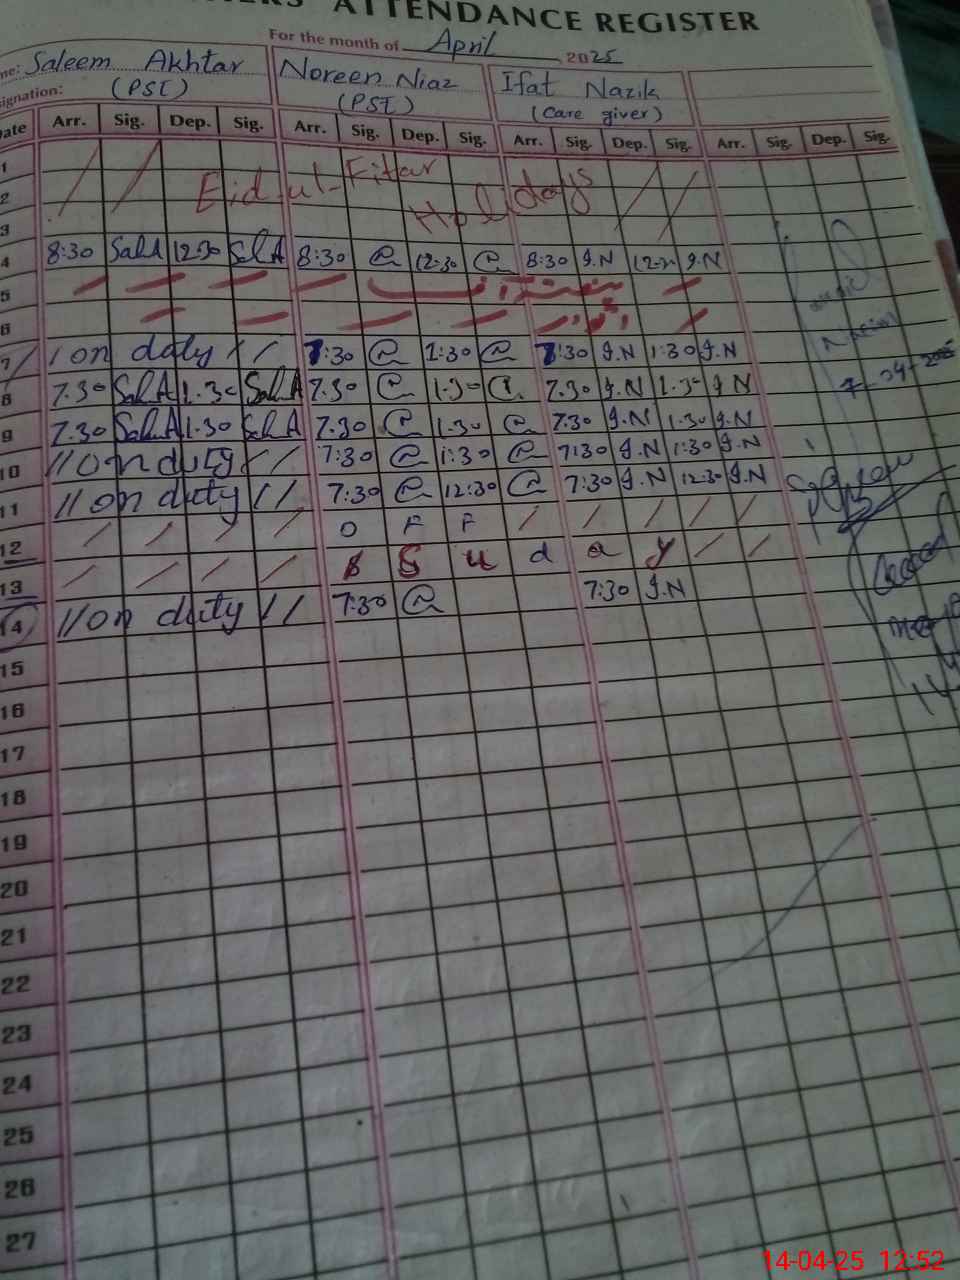 ATTENDANCE REGISTER
For the month of April 2025
Saleem Akhtar Noreen Niaz Ifat Nazik
signation: (PST) (PST) (Care giver)
Date Arr. Sig. Dep. Sig. Arr. Sig. Dep. Sig. Arr. Sig. Dep. Sig. Arr. Sig. Dep. Sig.
1
2 Eid-ul-Fitar Holidays
3
4 8:30 12:30 8:30 12:30 8:30 I.N I.N
5
6
7 // on duty // 7:30 1:30 7:30 I.N 1:30 I.N
8 7.30 1.30 7.30 1.30 7.30 I.N 1.30 I.N
9 7.30 1.30 7.30 1.30 7.30 I.N 1.30 I.N
10 // on duty // 7:30 1:30 7:30 I.N 1:30 I.N
11 // on duty // 7:30 12:30 7:30 I.N 12:30 I.N
12 O F F
13 S u d a y
14 // on duty // 7:30 7:30 I.N
15
16
17
18
19
20
21
22
23
24
25
26
27
14-04-25 12:52